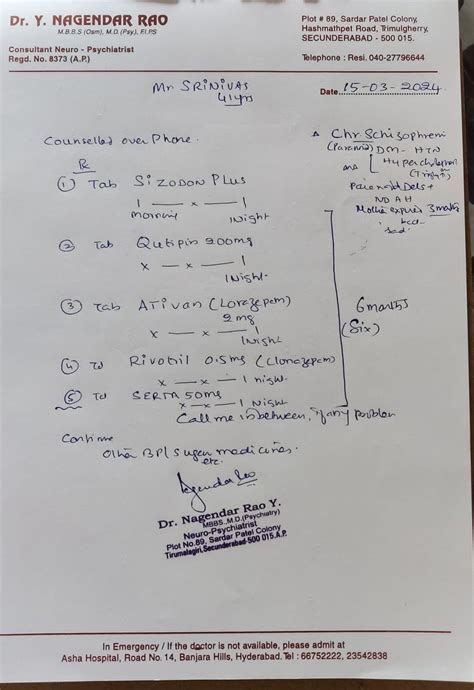 Dr. Y. NAGENDAR RAO
M.B.B.S (Osm), M.D. (Psy), F.I.P.S
Consultant Neuro - Psychiatrist
Regd. No. 8373 (A.P.)
Plot # 89, Sardar Patel Colony,
Hashmathpet Road, Trimulgherry,
SECUNDERABAD - 500 015.
Telephone : Resi. 040-27796644
Date 15-03-2024
Mr SRINIVAS
41yrs
Counselled over Phone.
Δ Chr Schizophreni
(Paranoid) DM - HTN
Paranoid Dels +
3 months
sad
Rx
① Tab SIZODON PLUS
1 — x — 1
morning Night
② Tab Qutipin 200mg
x — x — 1
Night
③ Tab ATIVAN (Lorazepam)
2 mg
x — x — 1
Night
6 months
(Six)
④ Td Rivotril 0.5mg (Clonazepam)
x — x — 1 night
⑤ Td SERTA 50mg
x — x — 1 Night
Call me inbetween, if any problem
Continue
Other BP/Sugar medicines.
etc.
Nagendar Rao
Dr. Nagendar Rao Y.
MBBS.,M.D.(Psychiatry)
Neuro-Psychiatrist
Plot No.89, Sardar Patel Colony
Tirumalagiri, Secunderabad-500 015.A.P.
In Emergency / If the doctor is not available, please admit at
Asha Hospital, Road No. 14, Banjara Hills, Hyderabad. Tel : 66752222, 23542838